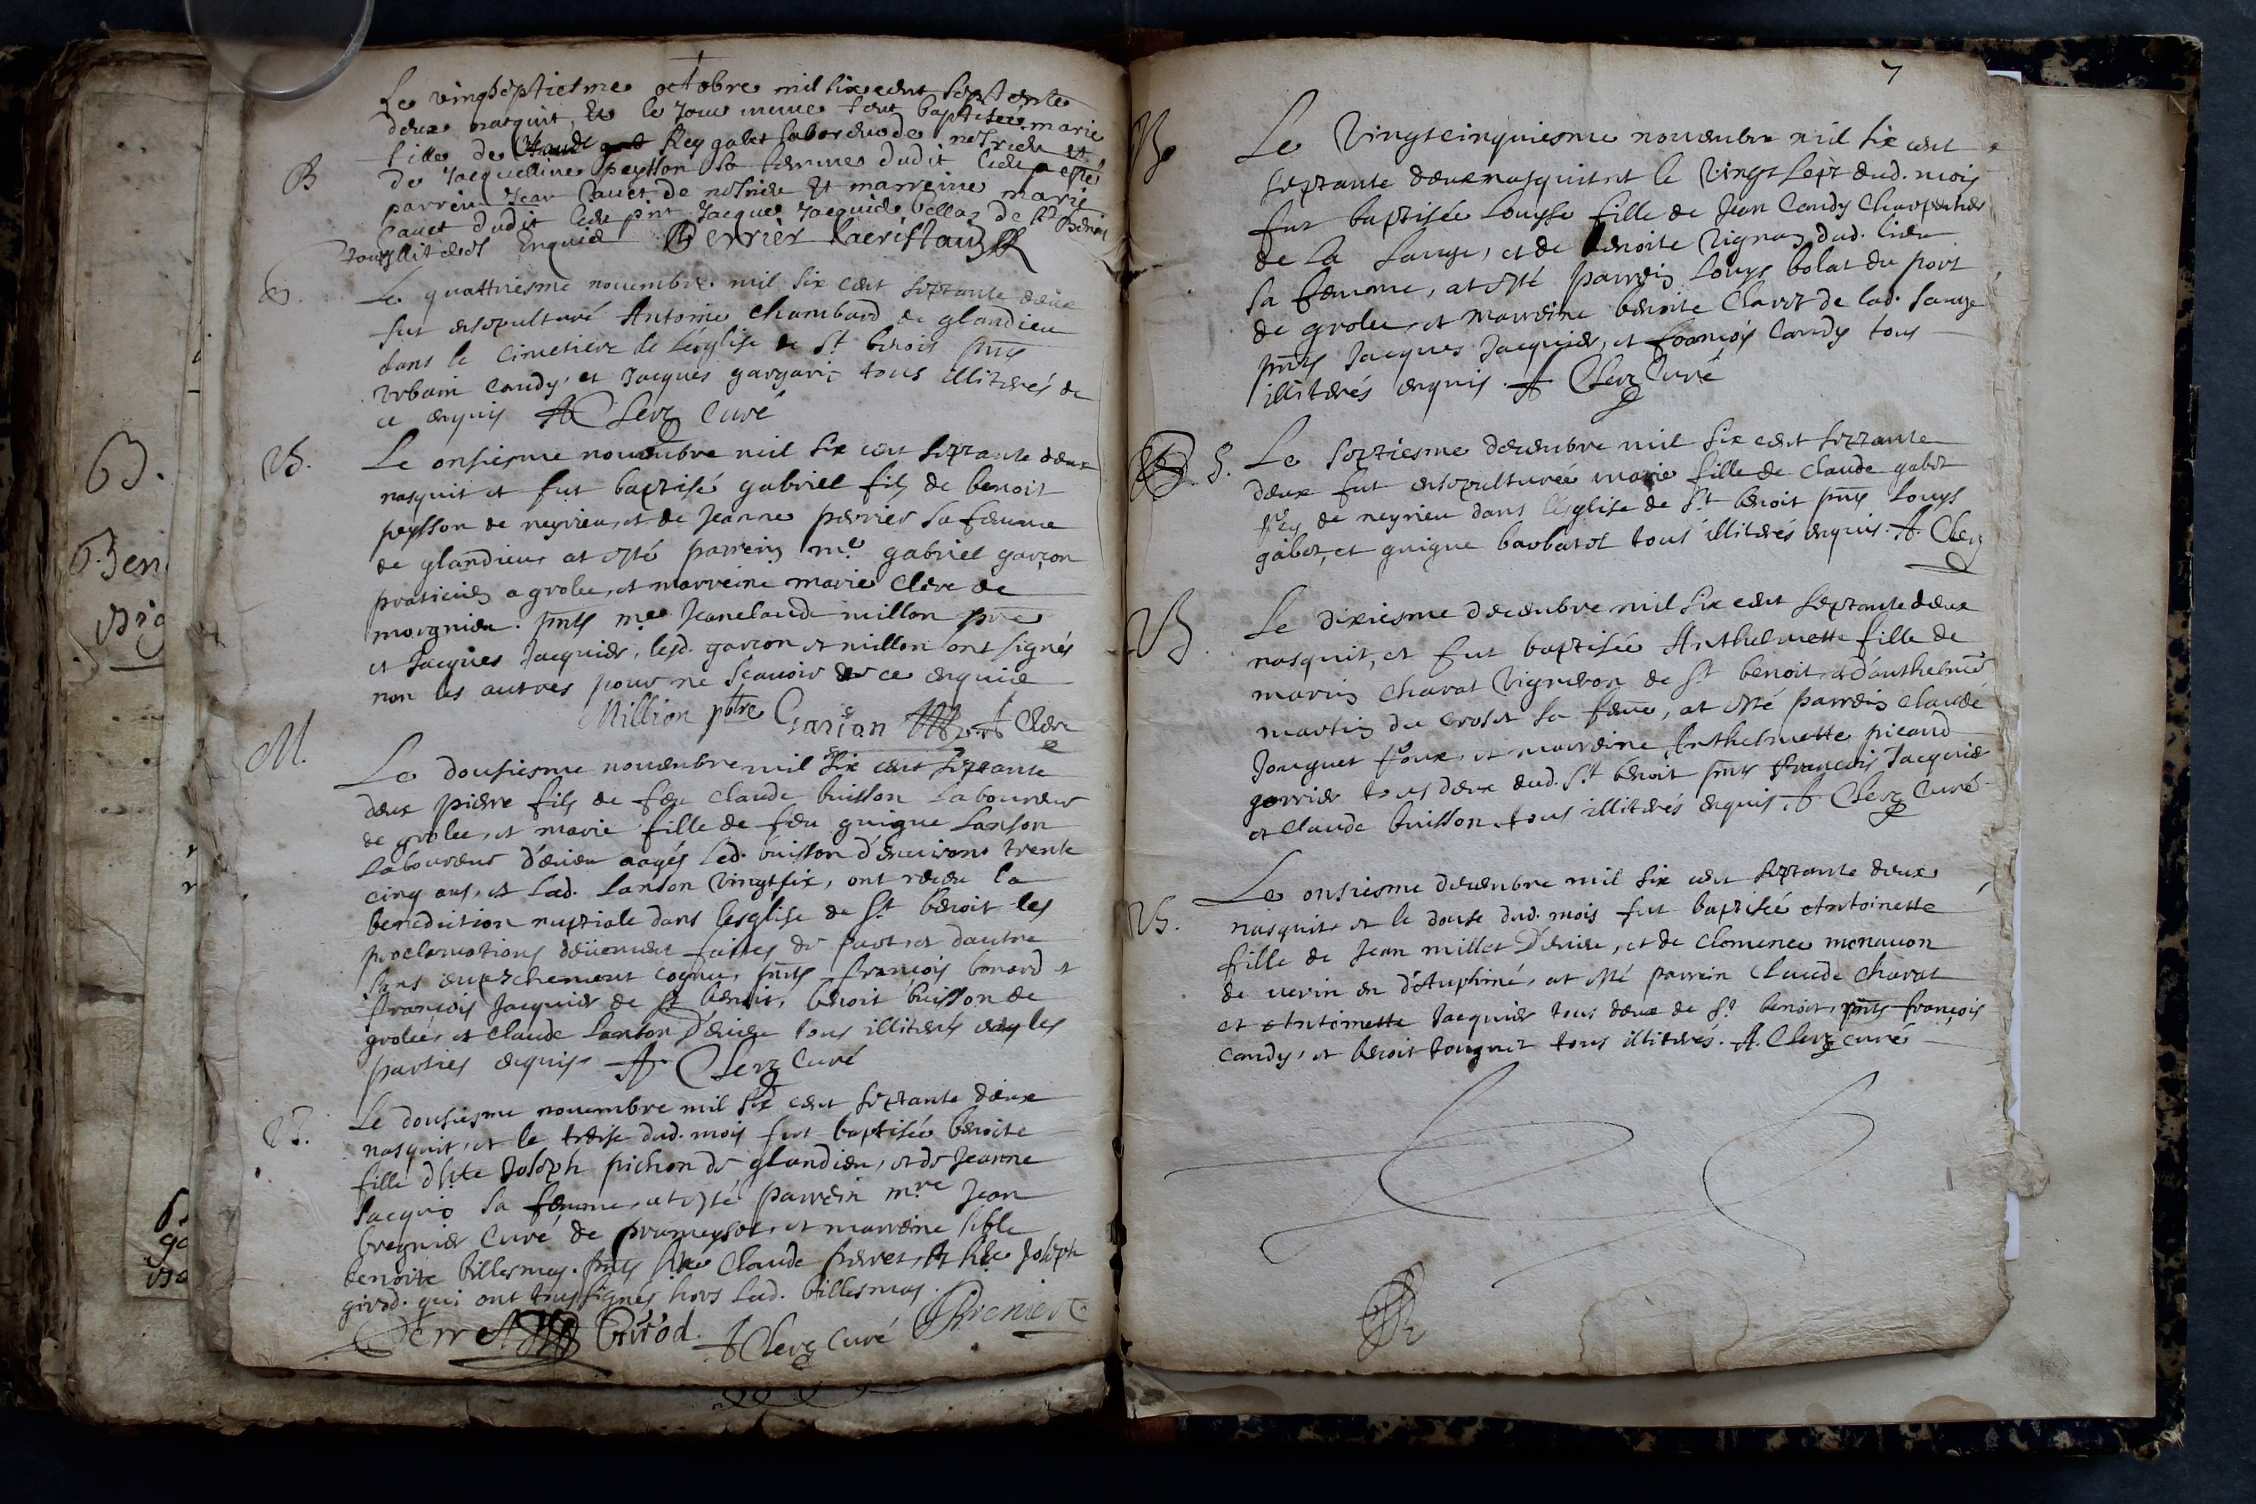 Le vingtseptiesme octobre mil six cent septente
deux naquit, Et le Jour mesme feut baptisée marie
fille de Claude Rey gabet laboreur de neirieu Et
B
de Jacquelline peysson sa femme dudit lieu a esté
parrein Jean Cauet de neirieu Et marreine marie
Cauet dudit lieu pnt Jacques Jacquier de St Benoit
tous illiteres Enquis Perrier Sacristain
S.
Le quattriesme nouembre mil six cent septante deux
fut ensepulturé Antoine Chambard de glandieu
dans le Cimetiere de l'esglise de St benoit pnts
Urbain Candy, et Jacques tous illiterés de
ce enquis A Clerg Curé
B.
Le onsiesme nouembre mil six cent septante deux
nasquit et fut baptisé gabriel fils de benoit
peysson de neyrieu, et de Jeanne perrier sa femme
de glandieu at esté parrein me gabriel garçon
praticien a grolee, et marreine marie Clere de
morgnieu. pnts mre Jeanclaude millon pbre
et Jacques Jacquier, lesd. garcon et millon ont signés
non les autres pour ne scauoir de ce enquis
Million pbtre Garian A Clere
M.
Le dousiesme nouembre mil six cent septante
deux pierre fils de feu Claude buisson laboureur
de grolee, et marie fille de feu guigue Lanson
Laboureur d'euieu aagés led. buisson d'enuiron trente
cinq ans, et lad. Lanson vingtsix, ont receu la
benediction nuptiale dans l'esglise de St benoit les
proclamations deüement faittes de part et dautre
sans empechement cognu, pnts françois bonard et
françois Jacquier de St benoit, benoit buisson de
grolee, et Claude Lanson d'euieu tous illiterés les
parties enquis A. Clerg Curé
B.
Le dousiesme nouembre mil six cent septante deux
nasquit, et le treise dud. mois fut baptisée benoite
fille d'hte Joseph pichon de glandieu, et de Jeanne
Jacquier sa femme, at esté parrein mre Jean
bregnier Curé de premeysel, et marreine sible
benoite billemas. pnts sr Claude perret, et hte Joseph
girod. qui ont tous signés hors lad. billemas.
Perret Girod A Clerg Curé Brenier
7
B.
Le vingtcinquiesme nouembre mil six cent
septante deux nasquit et le vingt sept dud. mois
fut baptisée Louyse fille de Jean Candy Charpentier
de la Sauge, et de benoite Vignaz dud. lieu
sa femme, at esté parrein Louys bolat du port
de grolee, et marreine benoite Claret de lad. sauge
pnts Jacques Jacquier, et françois Candy tous
illiterés enquis. A Clerg Curé
S.
Le septiesme decembre mil six cent septante
deux fut ensepulturée marie fille de Claude gabet
Rey de neyrieu dans l'esglise de St benoit pnts Louys
gabet, et guigue barbarat tous illiterés enquis. A. Clerg
B.
Le dixiesme decembre mil six cent septante deux
nasquit, et fut baptisée Anthelmette fille de
marin Charat Vigneron de St benoit, et d'anthelme
martin du croset sa feme, at esté parrein Claude
Jouguet et marreine Anthelmette picaud
tous deux dud. St benoit pnts françois Jacquier
et Claude buisson tous illiterés enquis, A Clerg Curé
B.
Le onsiesme decembre mil six cent septante deux
nasquit, et le douse dud. mois fut baptisée Antoinette
fille de Jean millet d'euieu, et de Clemence monauon
de uerin en d'Auphiné, at esté parrein Claude Charat
et Antoinette Jacquier tous deux de St benoit, pnts françois
candy, et benoit Jouguet tous illiterés. A. Clerg curé
B.
Ben